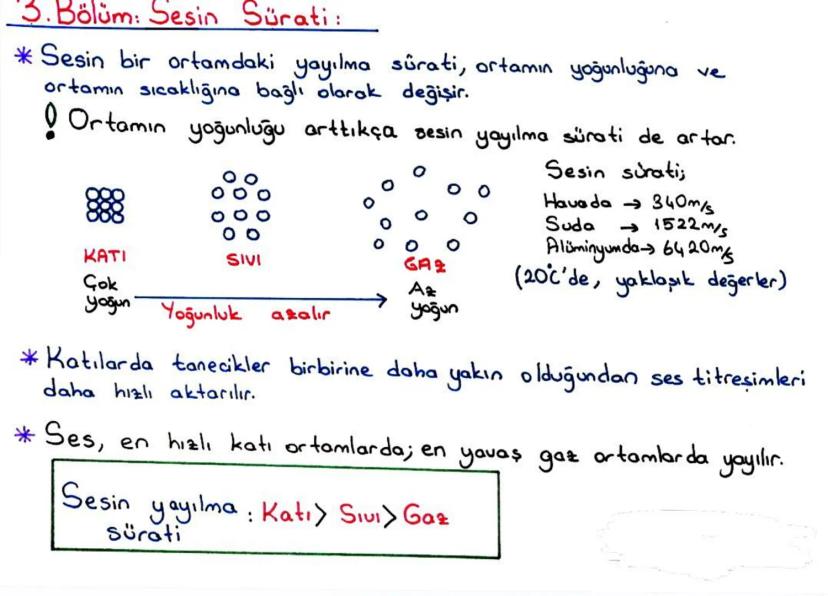 3. Bölüm: Sesin Sürati:
* Sesin bir ortamdaki yayılma sürati, ortamın yoğunluğuna ve
ortamın sıcaklığına bağlı olarak değişir.
! Ortamın yoğunluğu arttıkça sesin yayılma sürati de artar.
Sesin sürati;
Havada → 340m/s
Suda → 1522m/s
Alüminyumda → 6420m/s
(20°C'de, yaklaşık değerler)
KATI
SIVI
GAZ
Çok
yoğun
Az
yoğun
Yoğunluk azalır
* Katılarda tanecikler birbirine daha yakın olduğundan ses titreşimleri
daha hızlı aktarılır.
* Ses, en hızlı katı ortamlarda; en yavaş gaz ortamlarda yayılır.
Sesin yayılma : Katı > Sıvı > Gaz
sürati